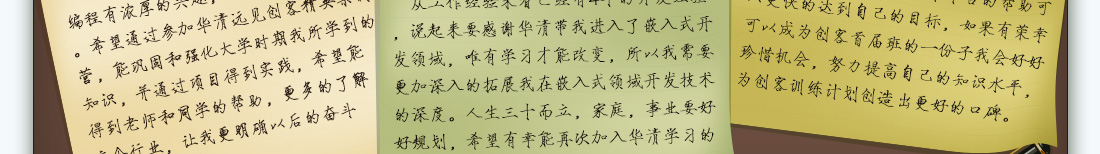 编程有浓厚的兴趣，
。希望通过参加华清远见创客精英
营，能巩固和强化大学时期我所学到的
知识，并通过项目得到实践，希望能
得到老师和同学的帮助，更多的了解
行业，让我更明确以后的奋斗
从工作经验来看已经有
，说起来要感谢华清带我进入了嵌入式开
发领域，唯有学习才能改变，所以我需要
更加深入的拓展我在嵌入式领域开发技术
的深度。人生三十而立，家庭，事业要好
好规划，希望有幸能再次加入华清学习的
的帮助可
更快的达到自己的目标，如果有荣幸
可以成为创客首届班的一份子我会好好
珍惜机会，努力提高自己的知识水平，
为创客训练计划创造出更好的口碑。